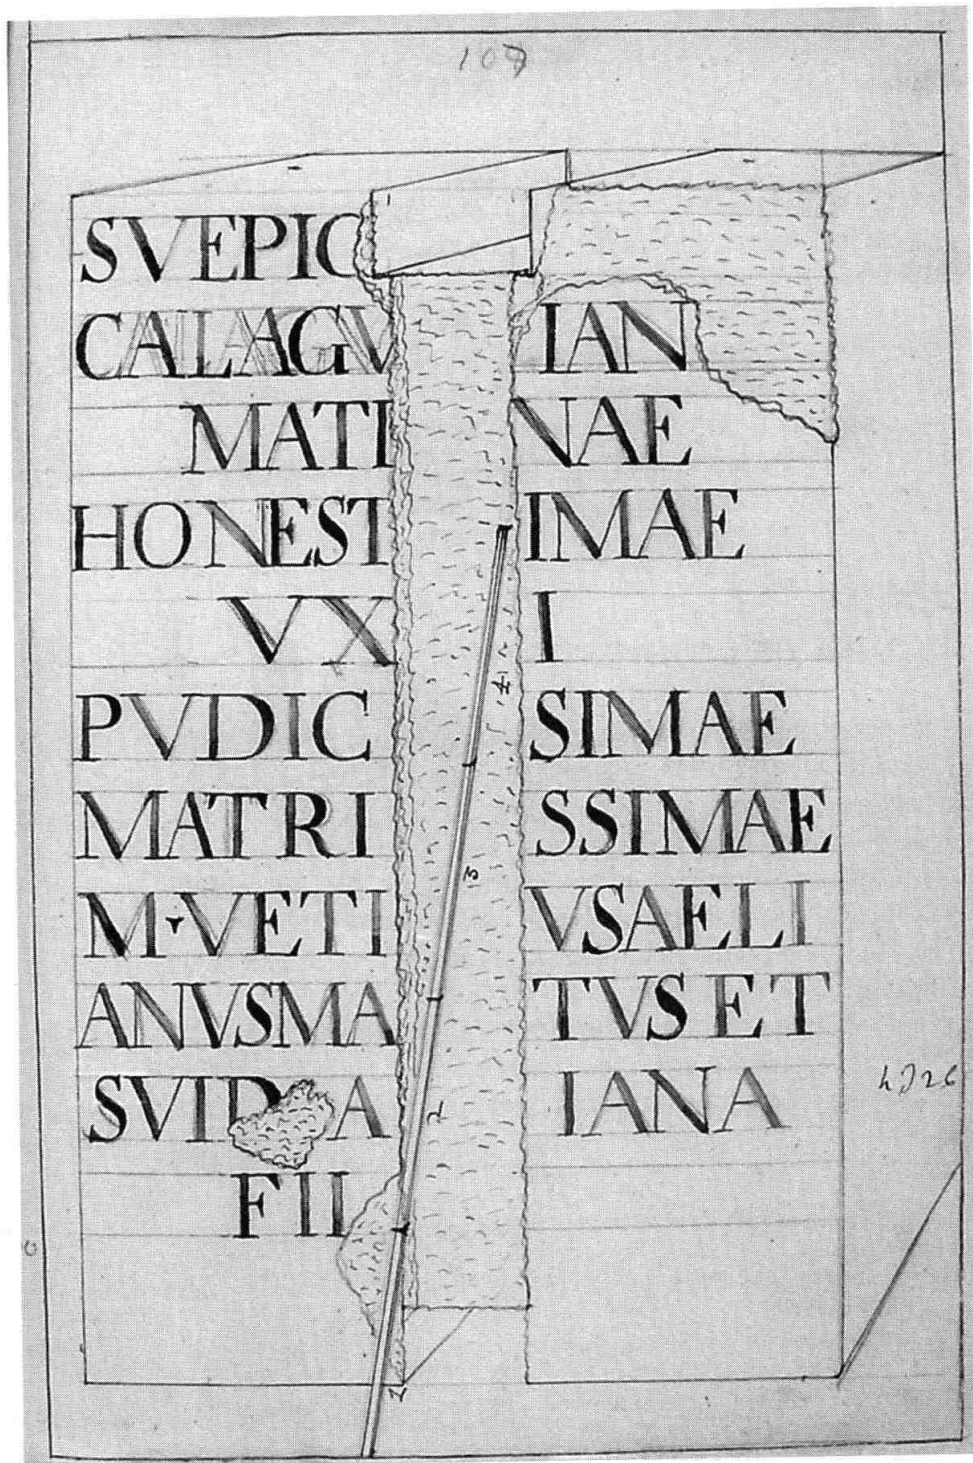 107
SVEPIC
CALAGV IAN
MATI NAE
HONEST IMAE
VX I
PVDIC SIMAE
MATRI SSIMAE
M·VETI VSAELI
ANVSMA TVSET
SVIP A IANA
FIL
4
3
2
1